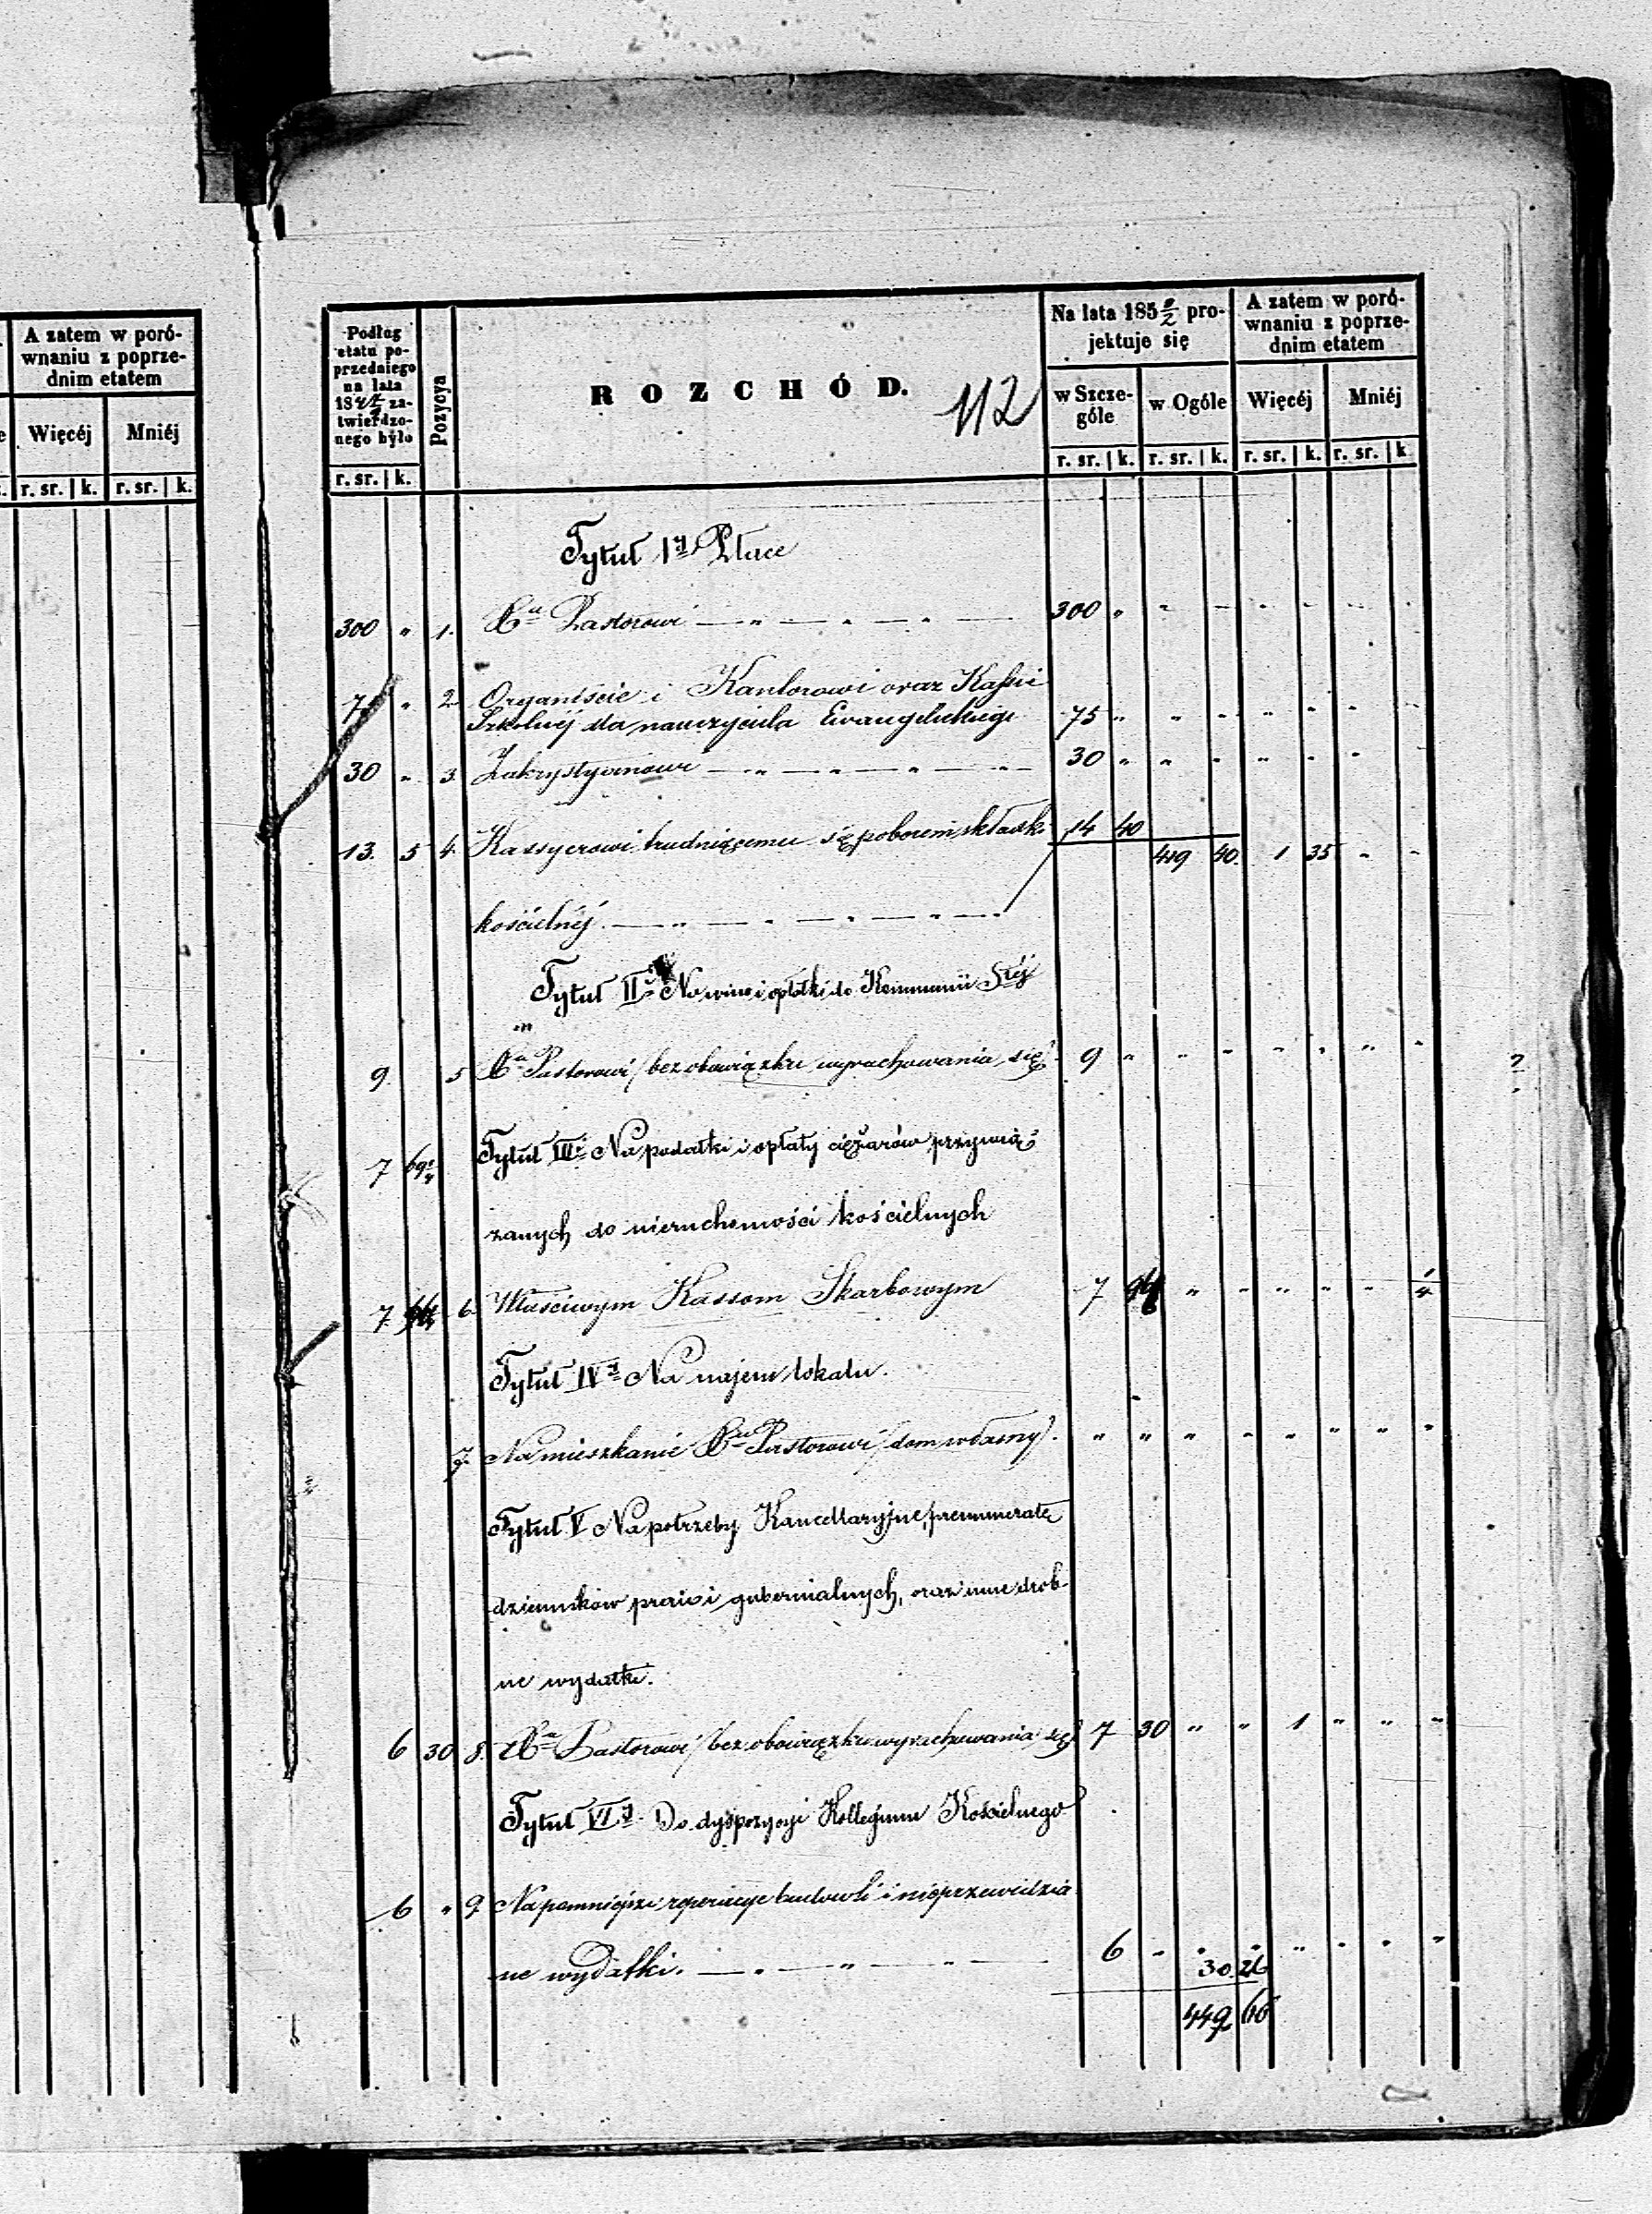 A zatem w poró-
wnaniu z poprze-
dnim etatem
Więcéj Mniéj
r. sr. k. r. sr. k.
Podług
etatu po-
przedniego
na lata
184 za-
twierdzo-
nego było
r. sr. k.
Pozycya
ROZCHÓD.
112
Na lata 185 0/2 pro-
jektuje się
w Szcze-
góle
w Ogóle
r. sr. k. r. sr. k.
A zatem w poró-
wnaniu z poprze-
dnim etatem
Więcéj Mniéj
r. sr. k. r. sr. k.
Tytuł I Płace
300 " 1. Pastorowi — " — " — " — 300 "
" 2 Organiście i Kantorowi oraz Kassie
Szkolnéj dla nauczyciela Ewangelickiego 75 "
30 " 3. Zakrystyanowi — " — " — " — 30 "
13. 5 4. Kassyerowi trudniącemu się poborem składki 14 40
419 40. 1 35 " "
kościelnéj. — " — " — " — " — "
Tytuł II Na wino i opłatki do Kommunii Stéj
9. 5 Pastorowi /bez obowiązku wyrachowania się/ 9 "
7 69 Tytuł III Na podatki i opłaty ciężarów przywią-
zanych do nieruchomości kościelnych
7 6. Właściwym Kassom Skarbowym 7 96 1/4
Tytuł IV Na najem lokalu.
7. Na mieszkanie Pastorowi /dom własny/.
Tytuł V Na potrzeby Kancellaryjne, prenumeratę
dzienników praw i gubernialnych, oraz inne drob-
ne wydatki.
6 30 8. Pastorowi /bez obowiązku wyrachowania się/ 7 30 " " 1 " " "
Tytuł VI Do dyspozycyi Kollegium Kościelnego
6 " 9. Na pomniejsze reperacye budowli i nieprzewidzia
ne wydatki. — " — " — " — 6 "
30. 26
449 66